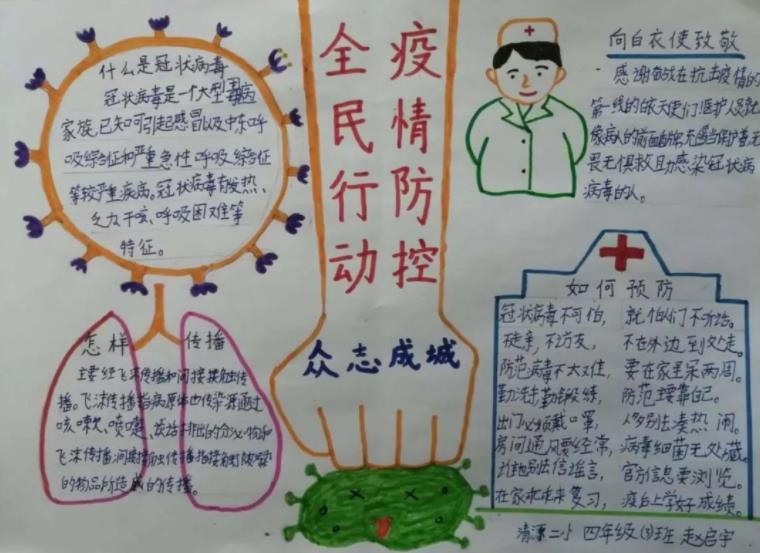 什么是冠状病毒
冠状病毒是一个大型毒病
家族,已知可引起感冒以及中东呼
吸综合征和严重急性呼吸综合征
等较严重疾病。冠状病毒有发热、
乏力干咳、呼吸困难等
特征。
怎样传播
主要经飞沫传播和间接接触传
播。飞沫传播指病原体由传染源通过
咳嗽、喷嚏、谈话排出的分泌物和
飞沫传播,间接接触传播指接触
的物品所造成的传播。
疫情防控
全民行动
众志成城
向白衣使致敬
感谢奋战在抗击疫情的
第一线的白衣天使们医护人员就
像病人的
畏无惧救助感染冠状病
病毒的人。
如何预防
冠状病毒不可怕, 就怕们不听话。
不走亲,不访友, 不在外边到处走。
防范病毒不太难, 要在家里呆两周。
勤洗手勤锻练, 防范主要靠自己。
出门必须戴口罩, 人多别去凑热闹。
房间通风要经常, 病毒细菌无处藏。
别信谣言, 官方信息要浏览。
在家 复习, 上学好成绩。
清源二小 四年级(3)班 赵启宇